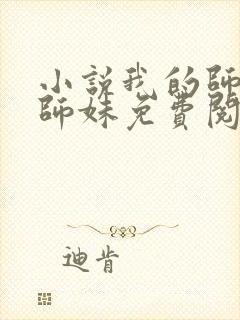 小說我的師
師妹免費閱
迪肯